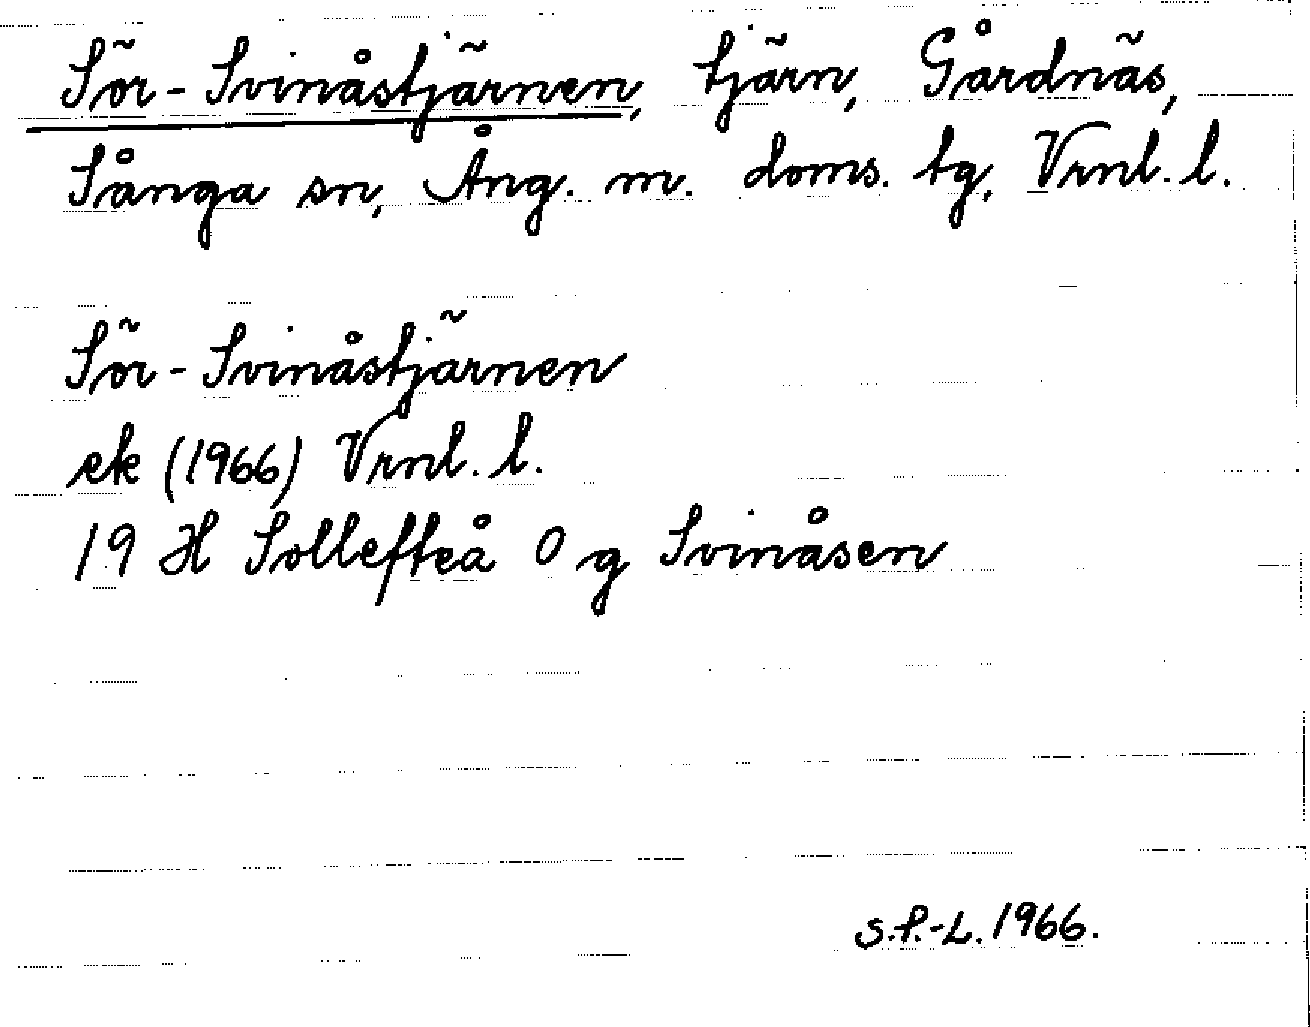 Sör-Svinåstjärnen, tjärn, Gårdnäs,
Sånga sn, Ång. m. doms. tg, Vrnl. l.
Sör-Svinåstjärnen
ek (1966) Vrnl. l.
19 H Sollefteå 0 g Svinåsen
S.P.-L. 1966.